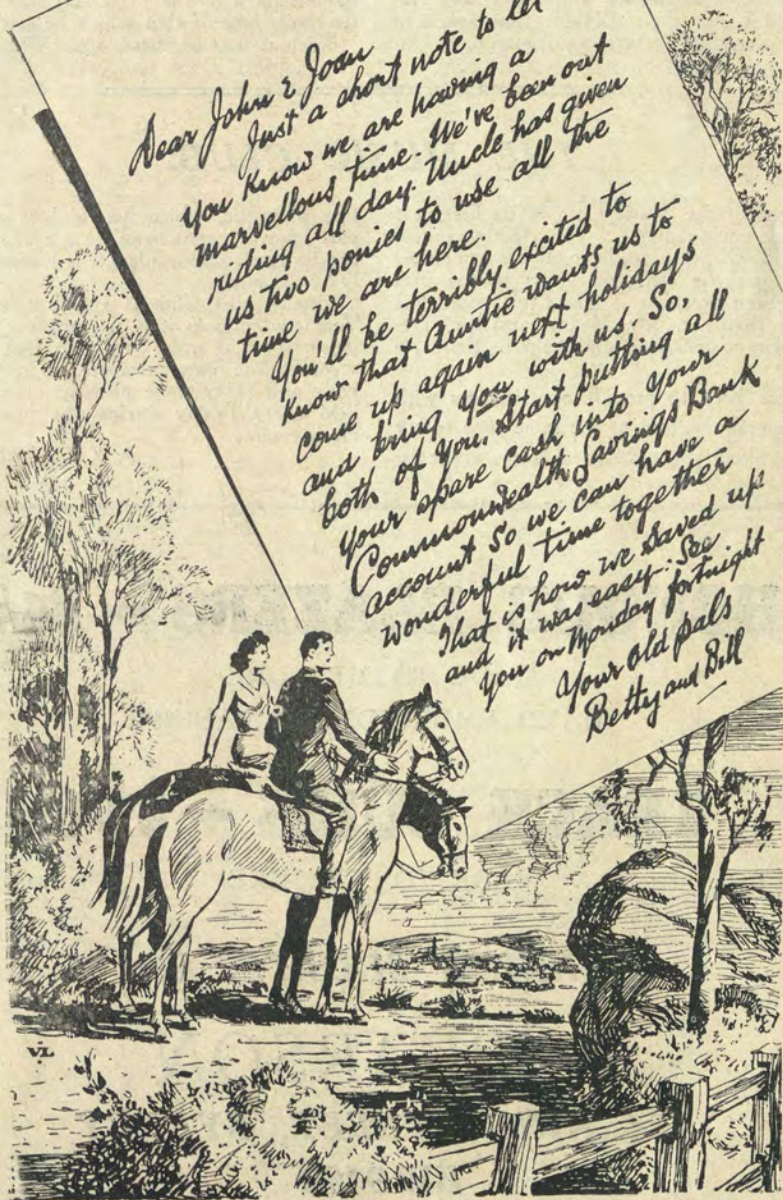 Dear John & Joan
Just a short note to let
you know we are having a
marvellous time. We've been out
riding all day. Uncle has given
us two ponies to use all the
time we are here.
You'll be terribly excited to
know that Auntie wants us to
come up again next holidays
and bring you with us. So,
both of you, start putting all
your spare cash into your
Commonwealth Savings Bank
account so we can have a
wonderful time together
That is how we saved up
and it was easy. See
you on Monday fortnight
Your old pals
Betty and Bill
VL